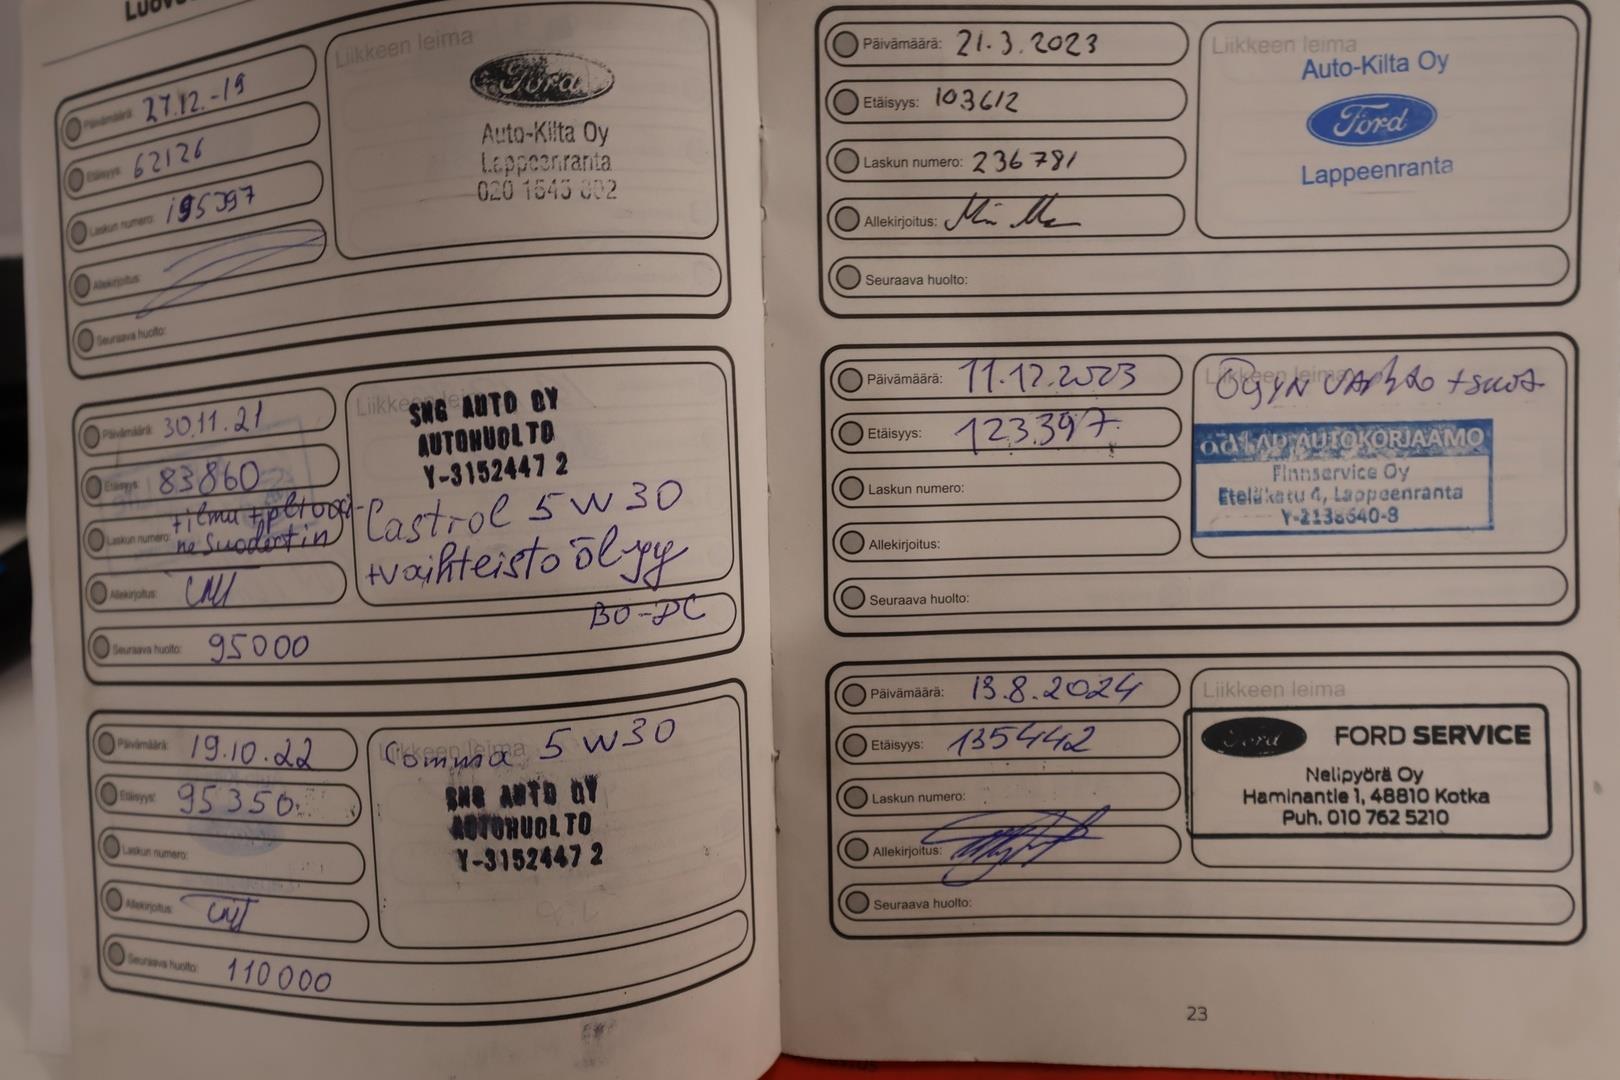 Päivämäärä: 27.12.-19
Etäisyys: 62126
Laskun numero: 195397
Allekirjoitus:
Seuraava huolto:
Liikkeen leima
Ford
Auto-Kilta Oy
Lappeenranta
020 1545 802
Päivämäärä: 30.11.21
Etäisyys: 83860
+ilma +pltvoi-
Laskun numero: ne suodattin
Allekirjoitus:
Seuraava huolto: 95000
Liikkeen leima
SNG AUTO OY
AUTOHUOLTO
Y-3152447 2
Castrol 5W30
+vaihteisto öljyy
BO-DC
Päivämäärä: 19.10.22
Etäisyys: 95350
Laskun numero:
Allekirjoitus:
Seuraava huolto: 110000
Liikkeen leima
Comma 5W30
SNG AUTO OY
AUTOHUOLTO
Y-3152447 2
Päivämäärä: 21.3.2023
Etäisyys: 103612
Laskun numero: 236781
Allekirjoitus:
Seuraava huolto:
Liikkeen leima
Auto-Kilta Oy
Ford
Lappeenranta
Päivämäärä: 11.12.2023
Etäisyys: 123.397
Laskun numero:
Allekirjoitus:
Seuraava huolto:
Liikkeen leima
ad AUTOKORJAAMO
Finnservice Oy
Eteläkatu 4, Lappeenranta
Y-2138640-8
Päivämäärä: 13.8.2024
Etäisyys: 135442
Laskun numero:
Allekirjoitus:
Seuraava huolto:
Liikkeen leima
Ford FORD SERVICE
Nelipyörä Oy
Haminantie 1, 48810 Kotka
Puh. 010 762 5210
23